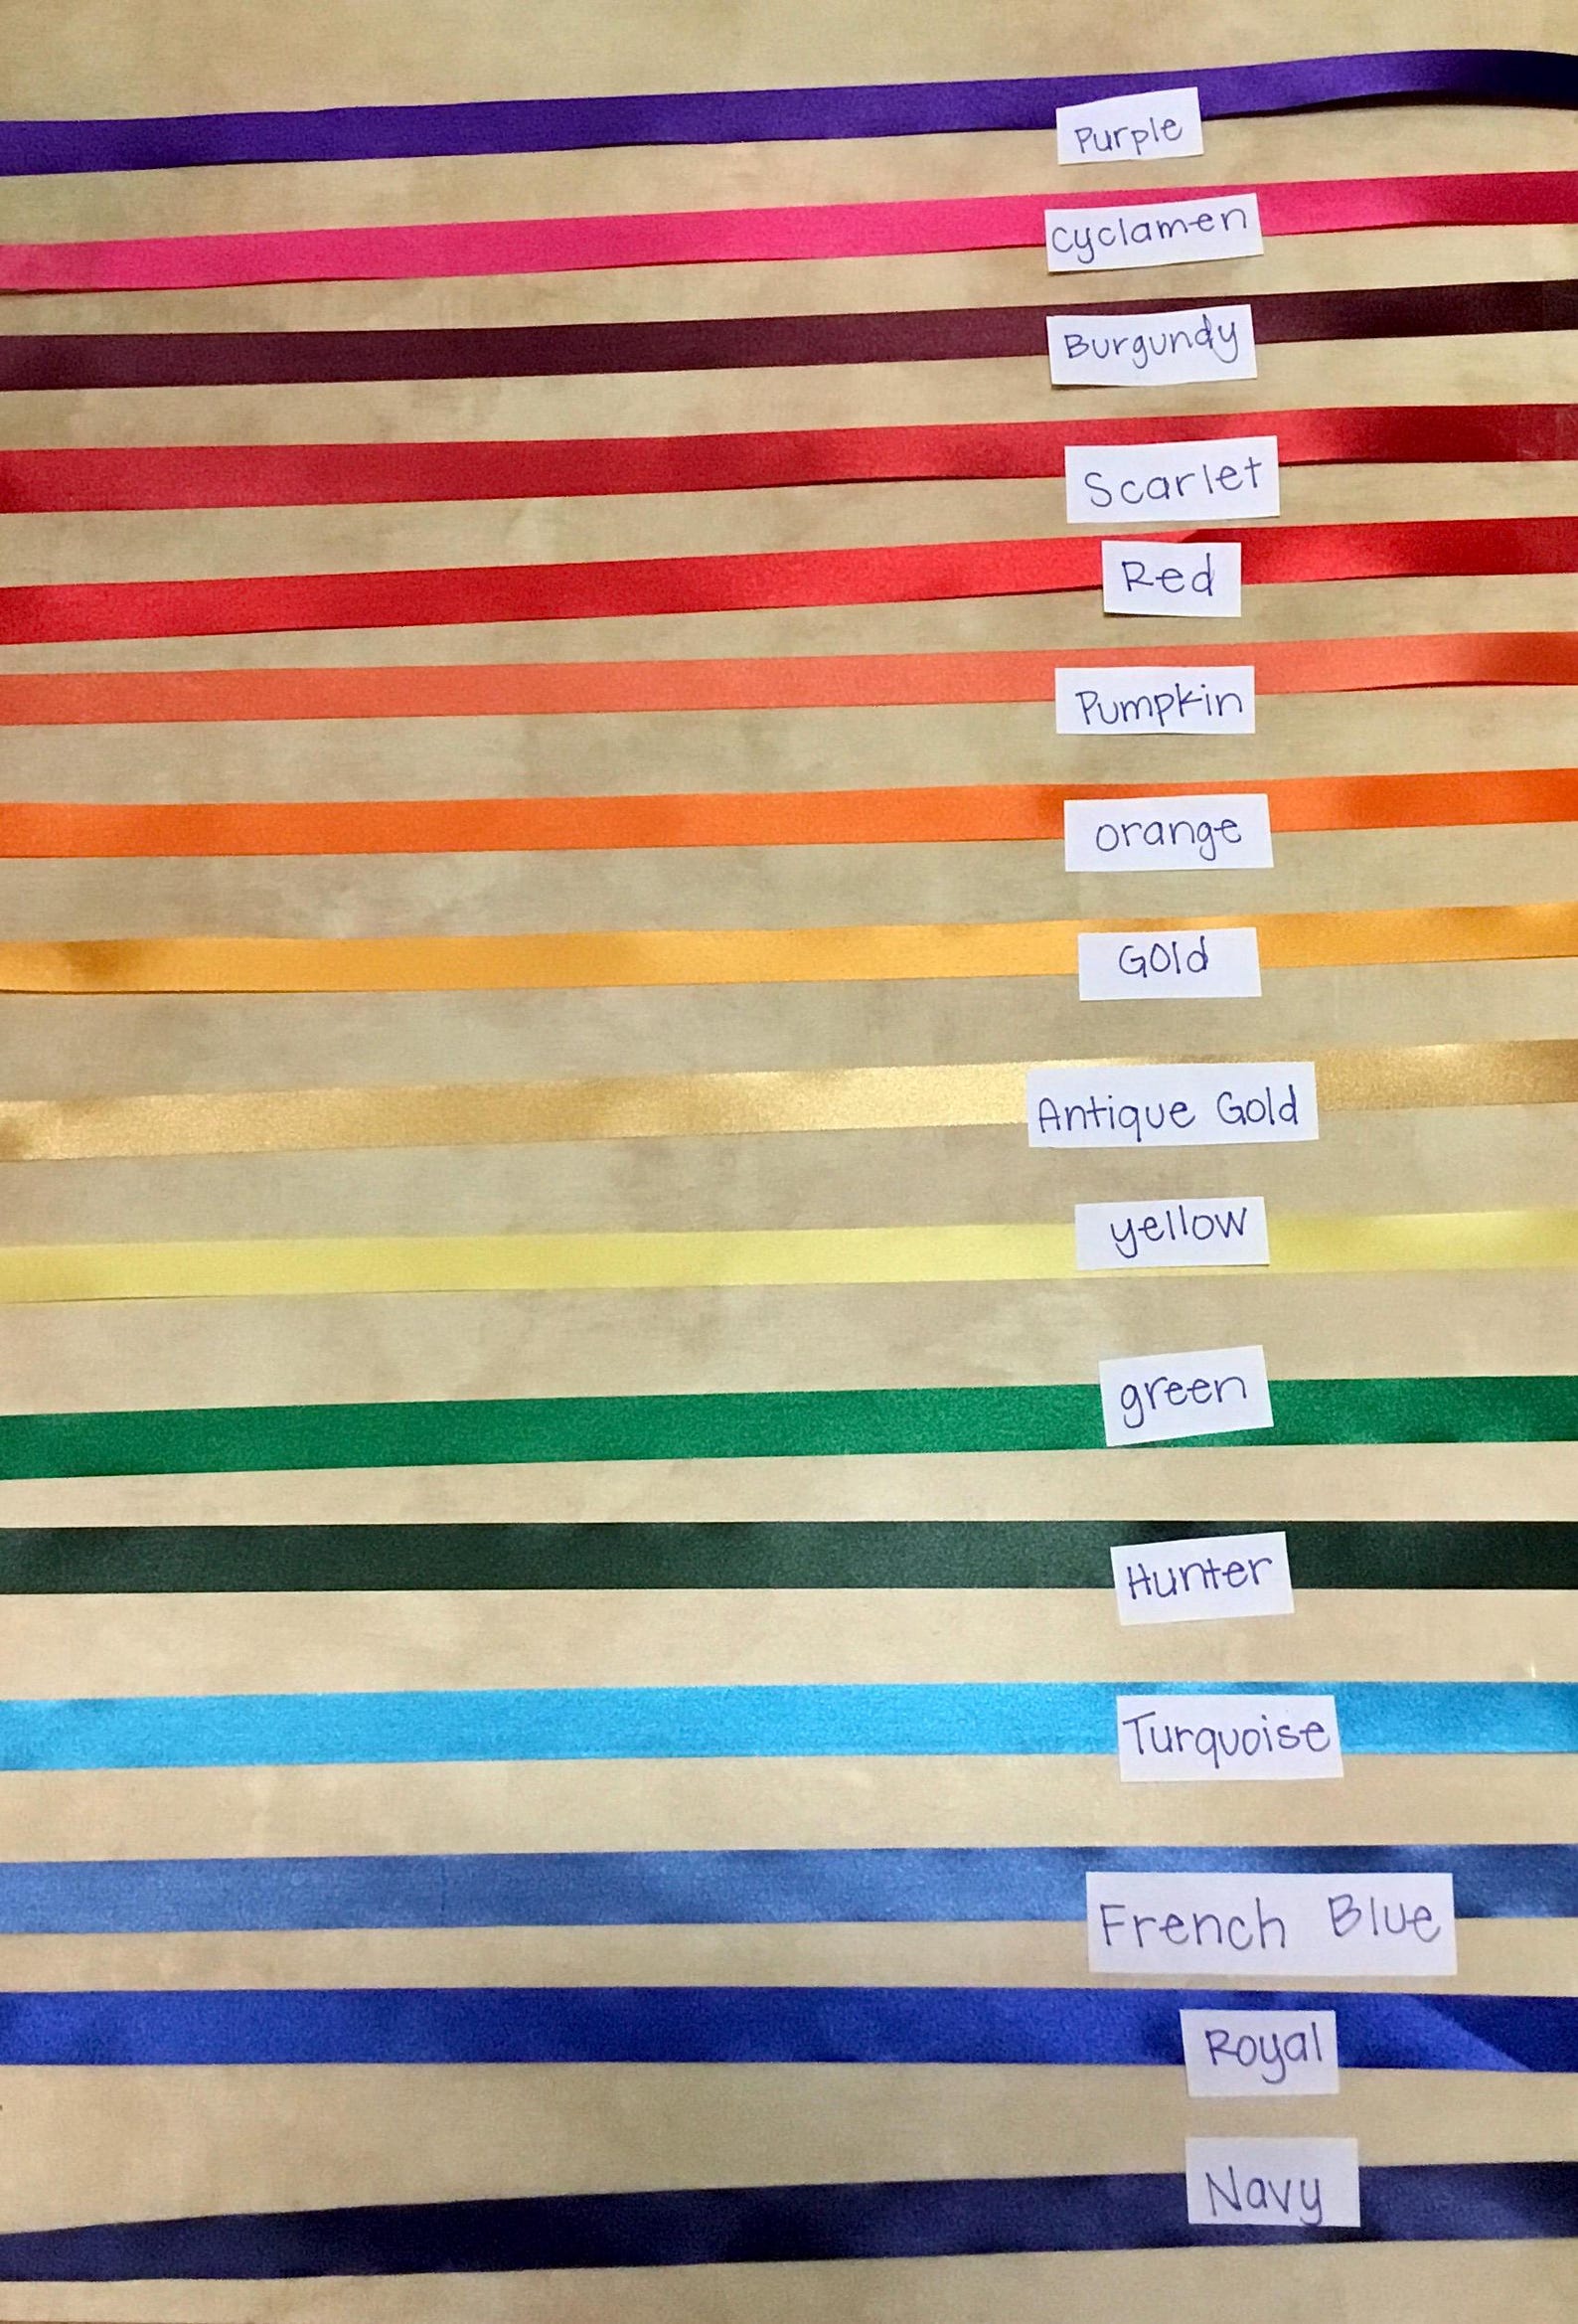 Purple
cyclamen
Burgundy
Scarlet
Red
Pumpkin
orange
Gold
Antique Gold
yellow
green
Hunter
Turquoise
French Blue
Royal
Navy